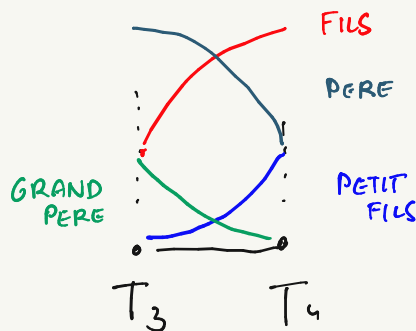 FILS
PERE
GRAND
PERE
PETIT
FILS
T3
T4